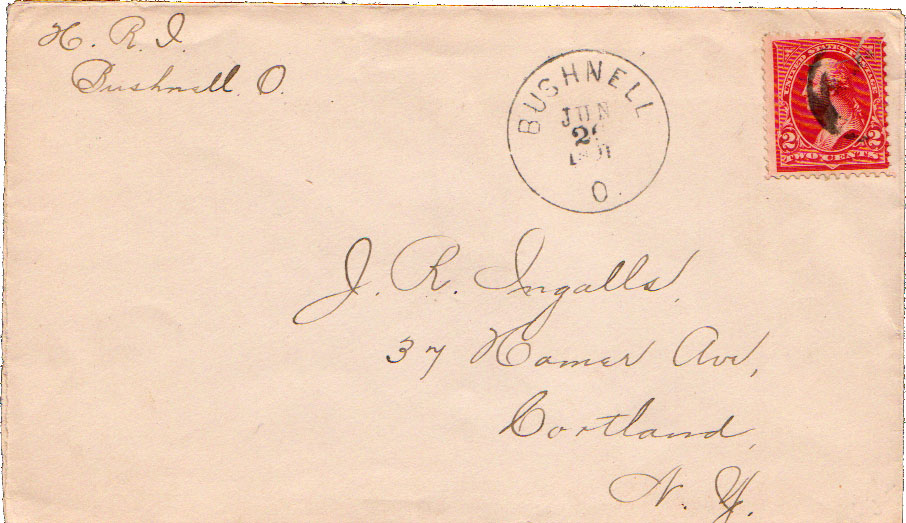 H. R. I.
Bushnell. O.
BUSHNELL
JUN
1901
O.
UNITED STATES POSTAGE
2 2
TWO CENTS
J. R. Ingalls,
37 Homer Ave,
Cortland,
N. Y.